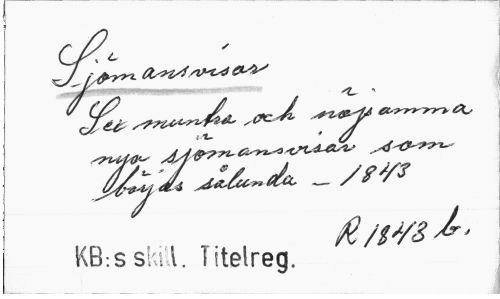 Sjömansvisor
Sex muntra och nöjsamma
nya sjömansvisor som
börjas sålunda – 1843
R 1843 b.
KB:s skill. Titelreg.